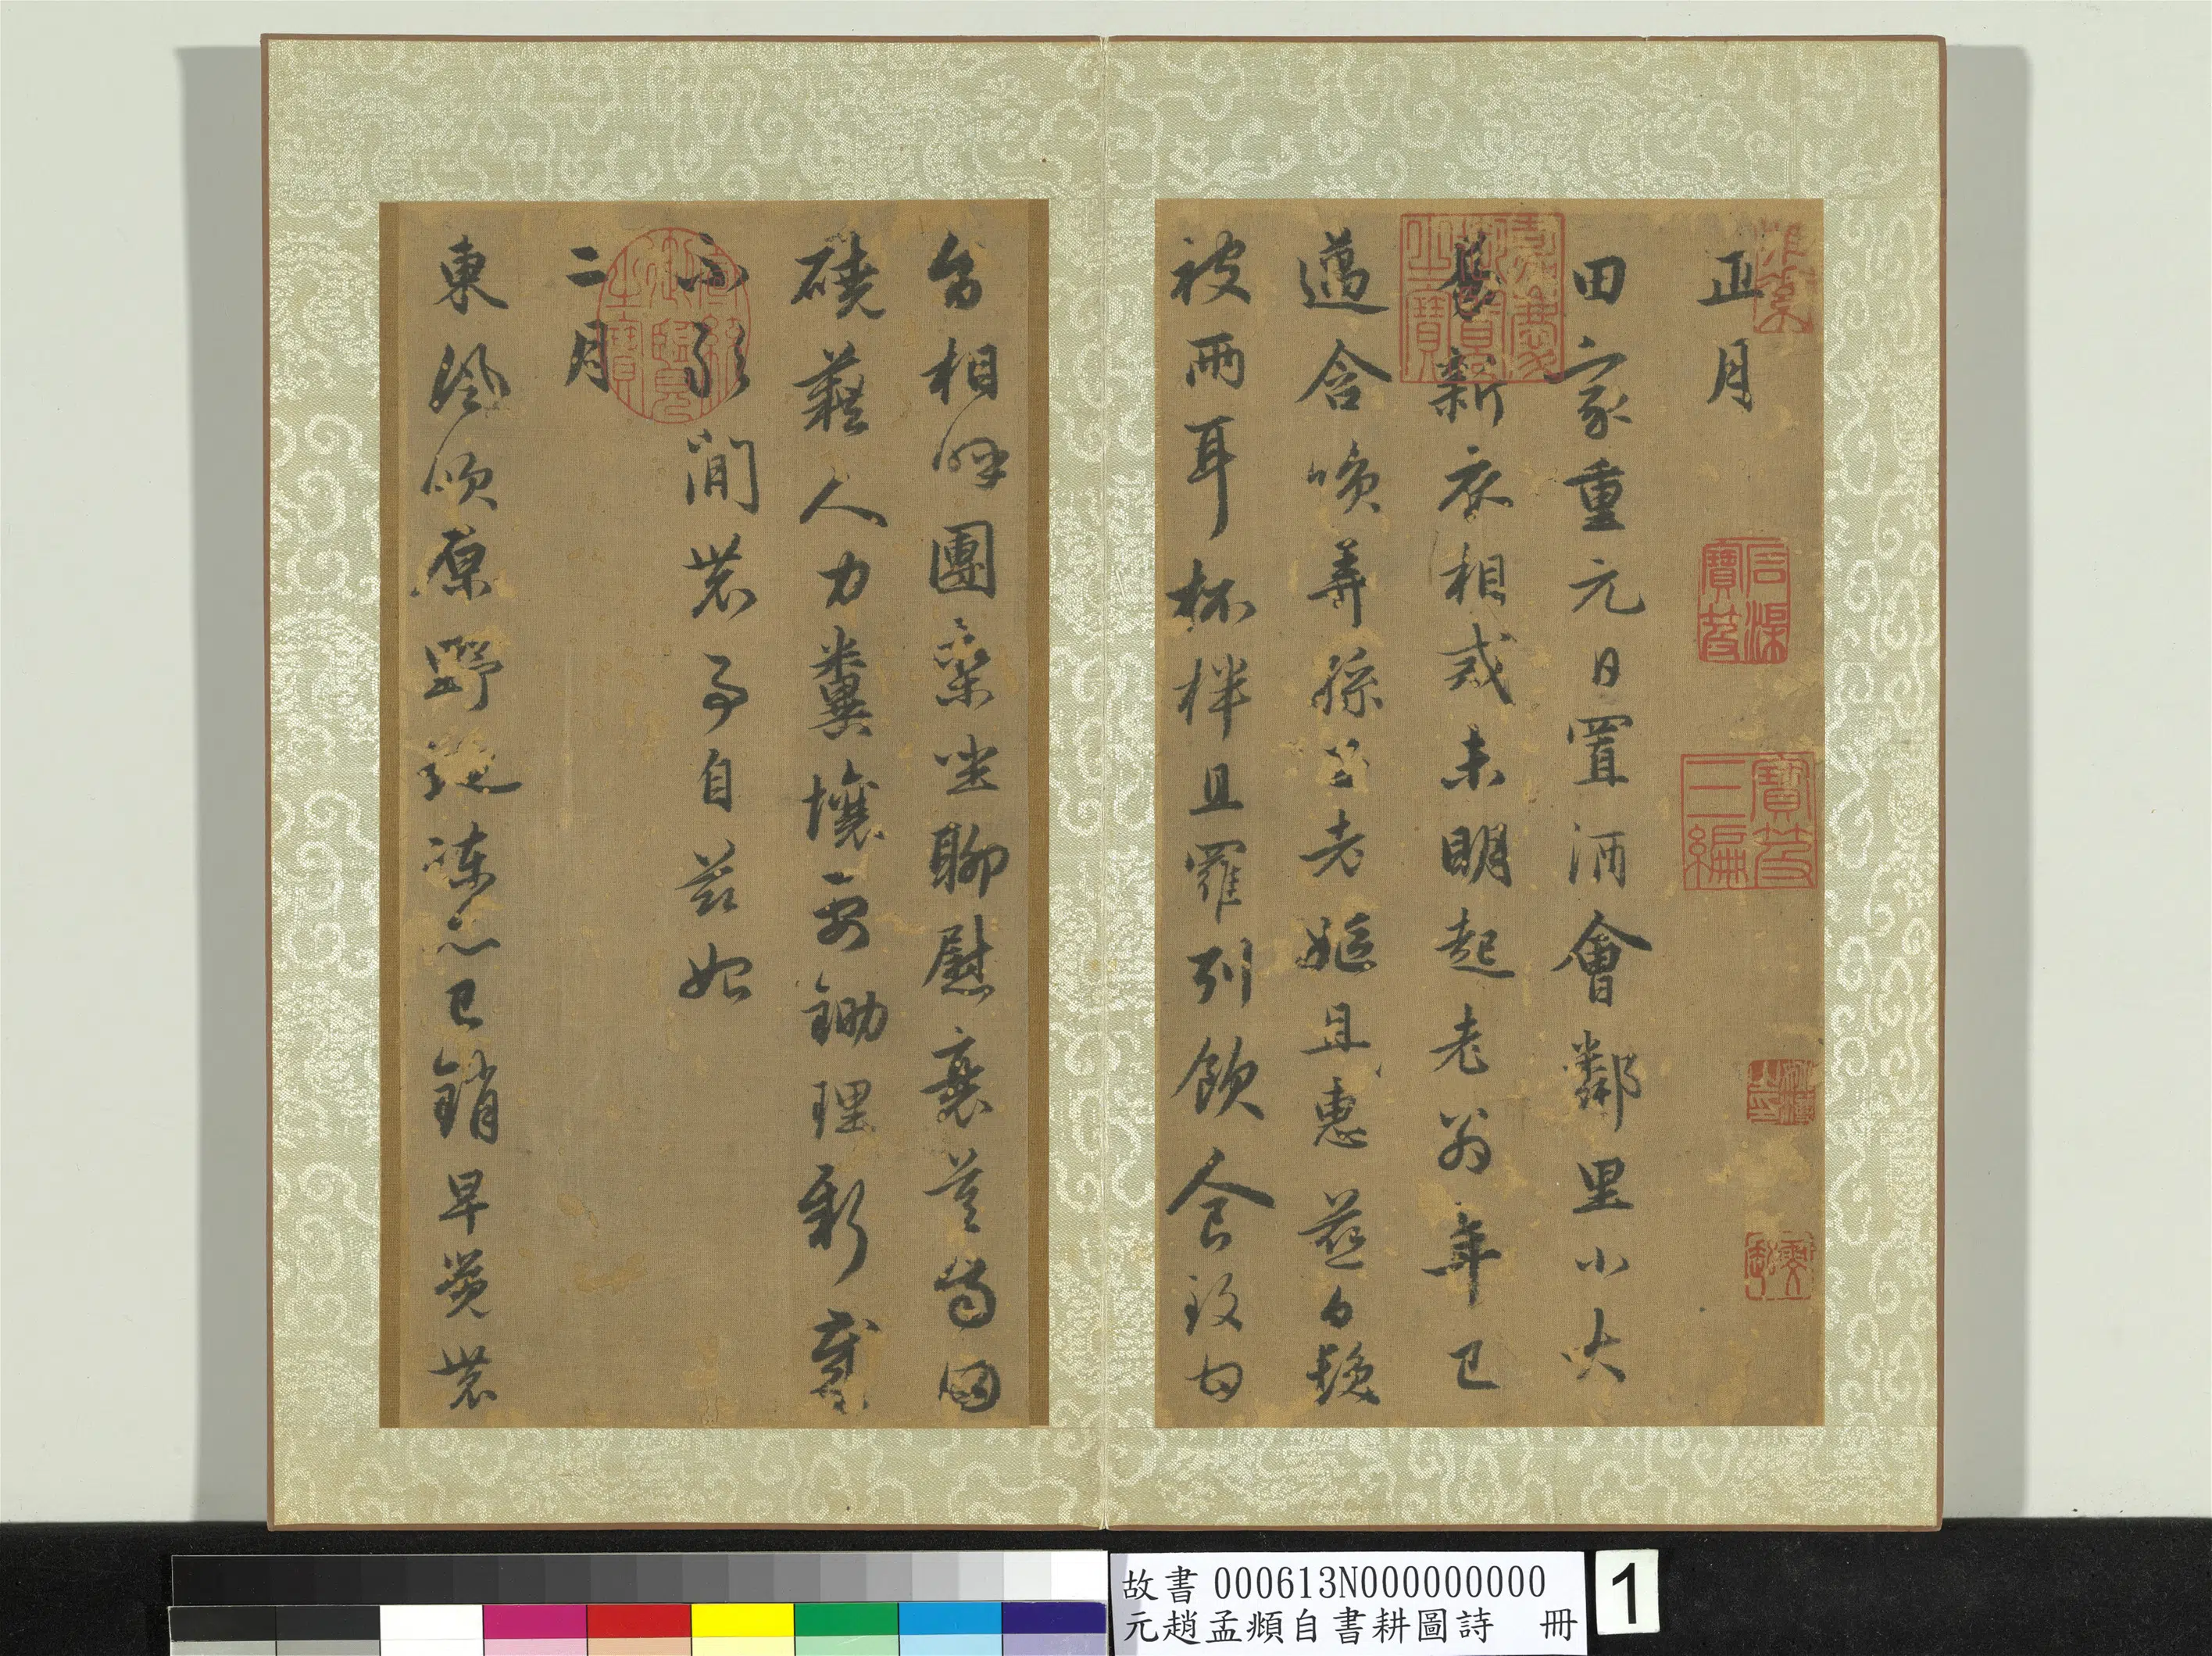 正月
田家重元日置酒會鄰里小大
易新衣相戒未明起老翁年已
邁含唉弄孫子老嫗且惠慈白髮
被兩耳杯柈且羅列飲食致甘
旨相呼團欒坐聊慰衰莫齒田
磽藉人力糞壤要鋤理新歲
不敢閒農事自茲始
二月
東風吹原野地凍亦已銷早覺農
嘉慶御覽之寶
石渠寶笈
寶笈三編
宣統御覽之寶
故書 000613N000000000
元趙孟頫自書耕圖詩 冊
1